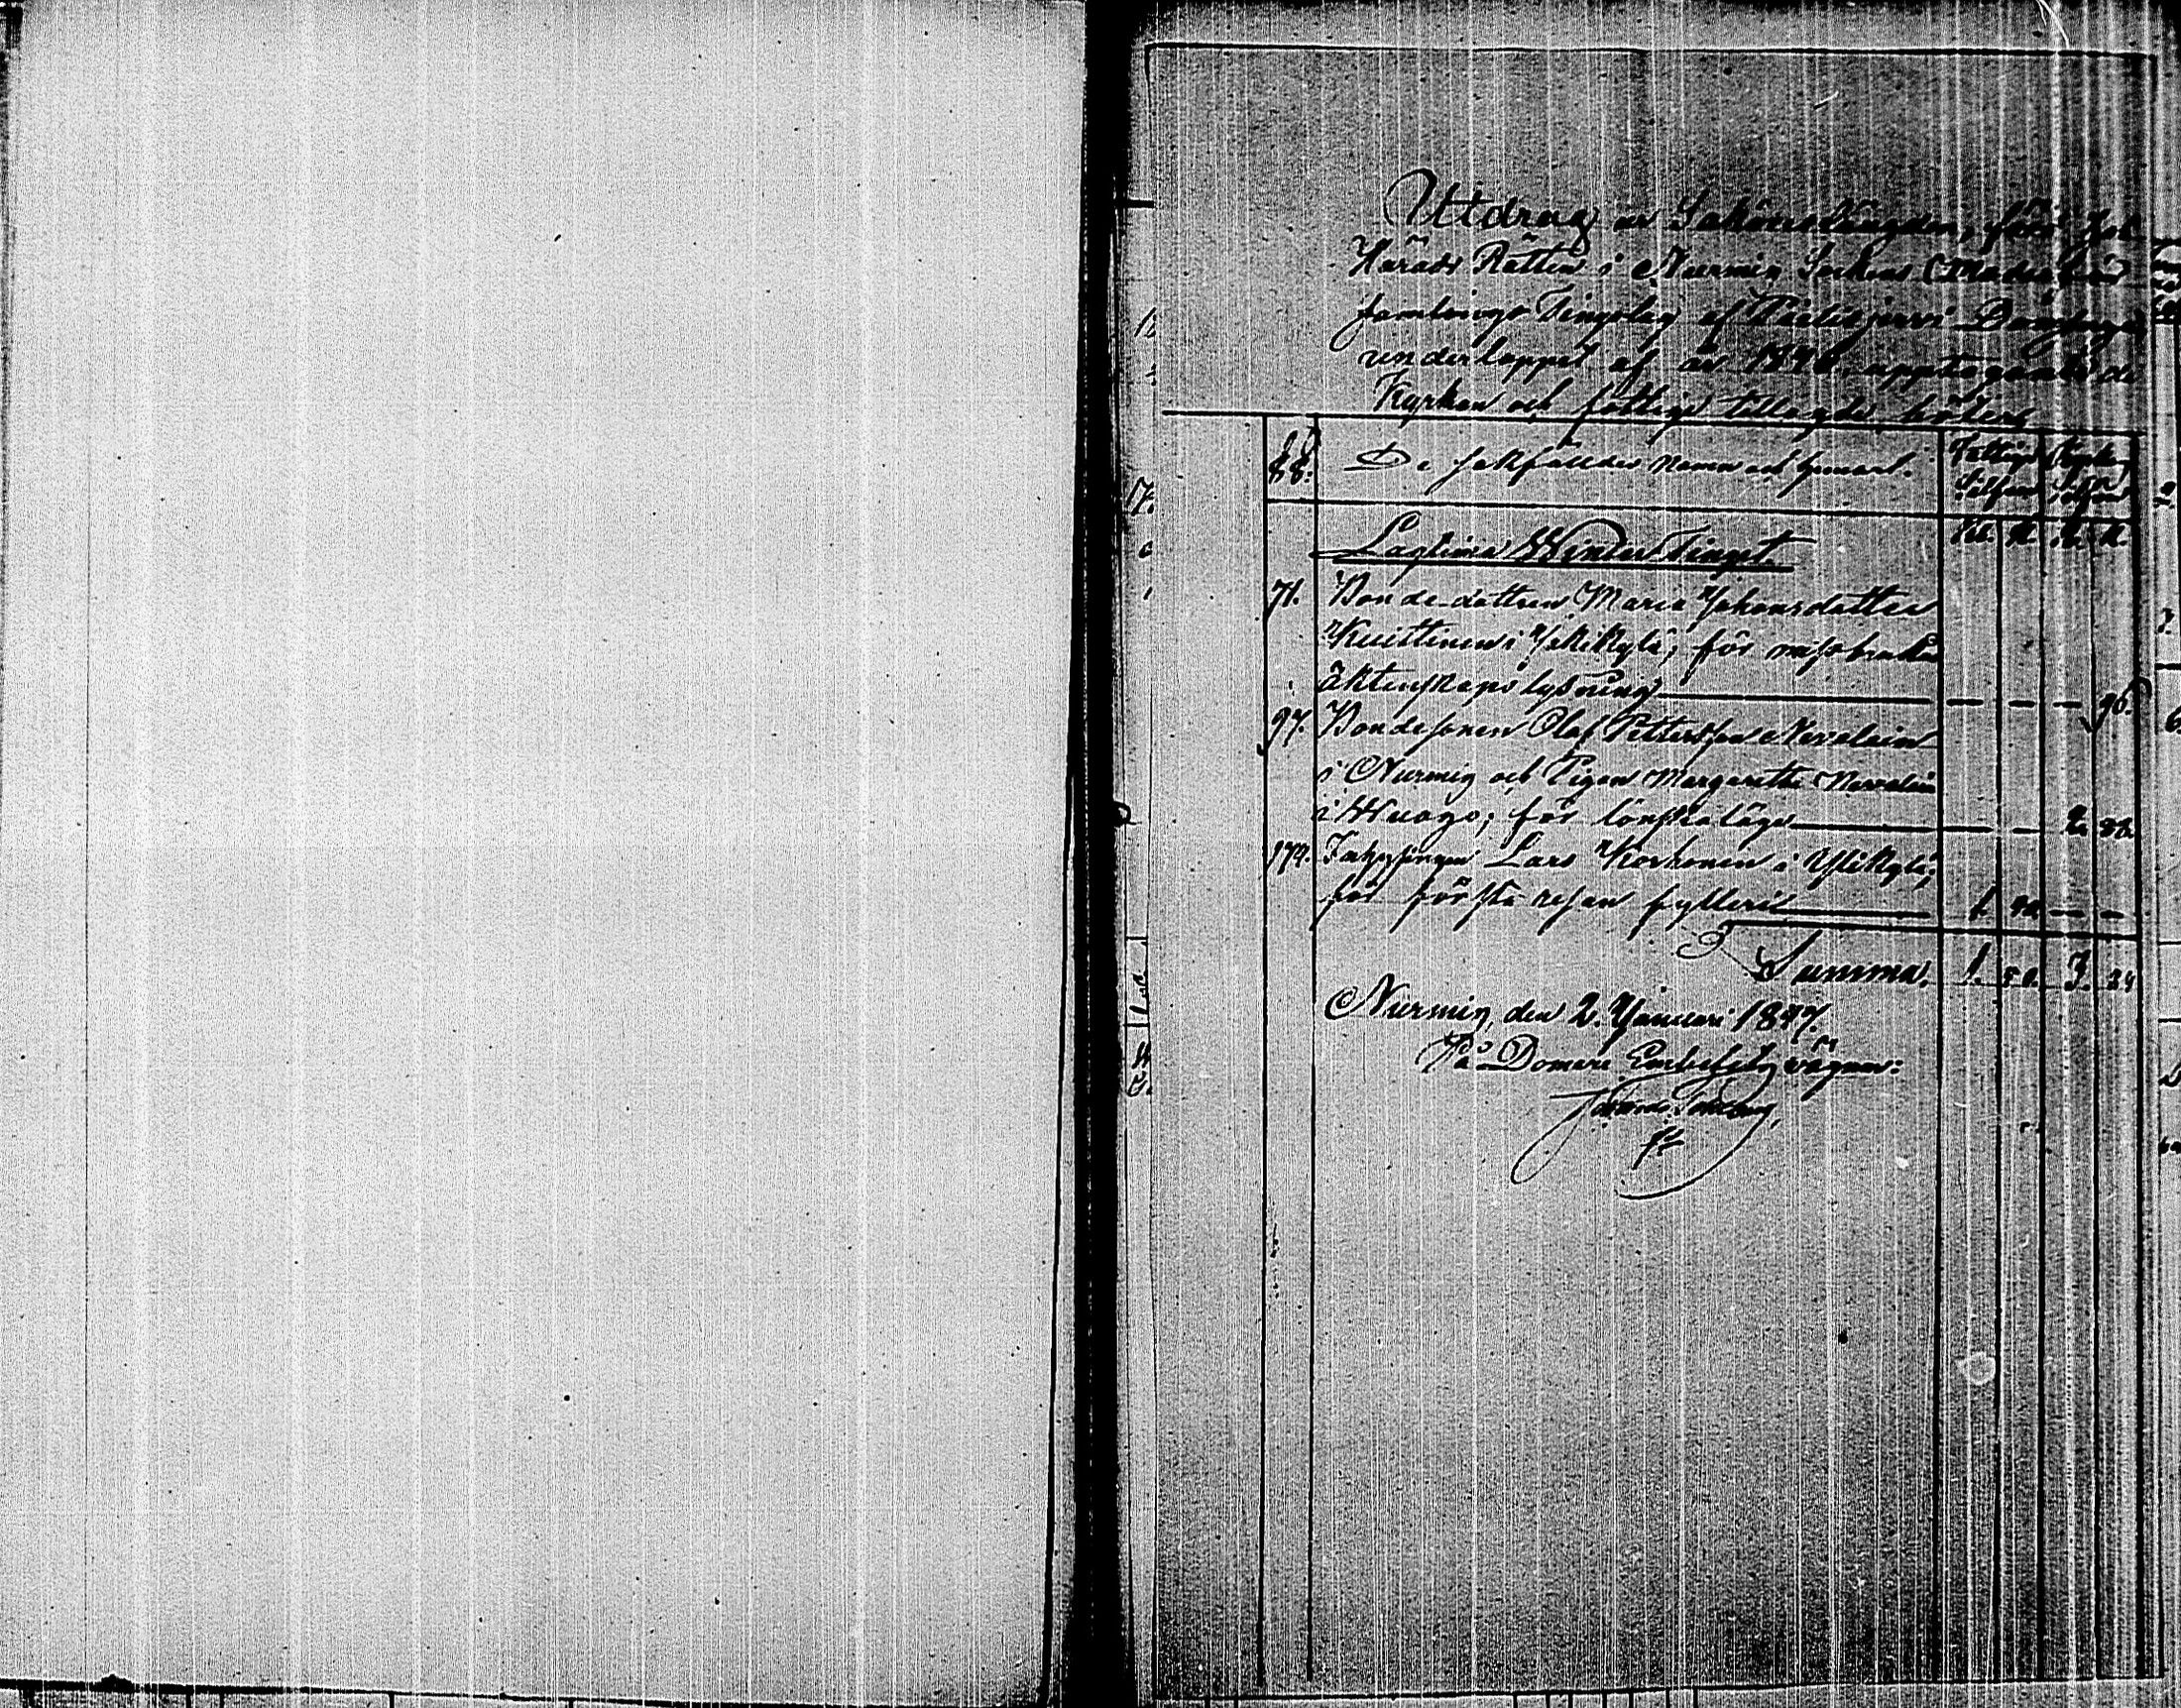 Utdrag ur Saköreslängden, förd hos
Härads Rätten i Nurmis Sockens Moderför
samlings Tingslag af Pielisjärvi Domsaga
under loppet af år 1846, upptagande de
Kyrkan och fattige tillagde böter
§§. De sakfälldes namn och hemort. Fattige Kyrkan
Silfver Silfver
Rub. K. R. K.
Lagtima Winter Tinget.
71. Bondedottren Maria Johansdotter
Kuittinen i Jokikylä; för missbrukad
äktenskaps lysning — — — — 96.
97. Bondesonen Olof Pettersson Nevalain
i Nurmis och Pigan Margaretha Nevalain
i Wuogo; för lönskaläge — — 2. 88.
174. Inhysingen Lars Korhonen i Ylikylä;
för första resan fylleri 1. — —
Summa. 1. 3. 84
Nurmis, den 2. Januari 1847.
På Domare Embetets vägnar: